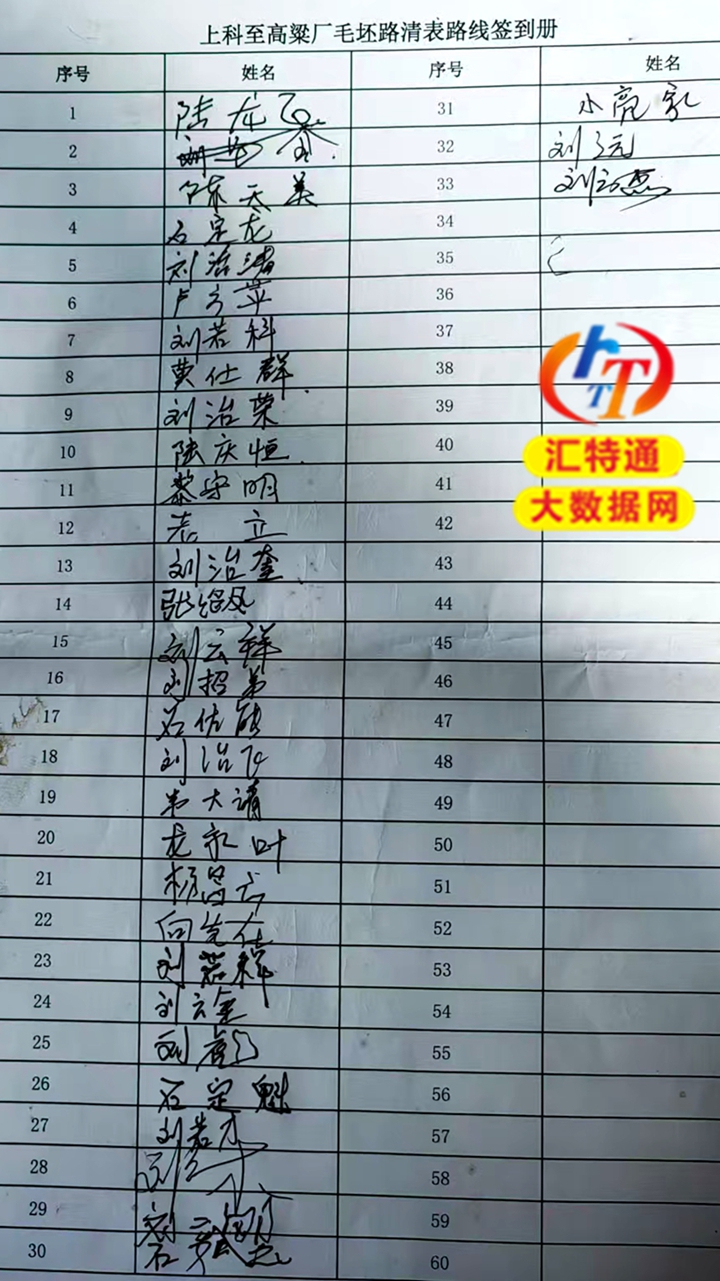 上科至高粱厂毛坯路清表路线签到册
序号 姓名 序号 姓名
1 陆龙飞 31 小亮家
2 32 刘云元
3 陈天美 33
4 石定龙 34
5 刘治清 35
6 卢方萍 36
7 刘若科 37
8 黄仕群 38
9 刘治荣 39
10 陆庆恒 40
11 黎守明 41
12 袁立 42
13 刘治奎 43
14 张绍凤 44
15 刘云祥 45
16 刘招弟 46
17 石佐 47
18 刘治飞 48
19 大靖 49
20 龙永叶 50
21 杨昌 51
22 向先在 52
23 刘若祥 53
24 刘云金 54
25 刘彪 55
26 石定魁 56
27 刘若 57
28 刘 58
29 刘云刚 59
30 石 60
汇特通
大数据网